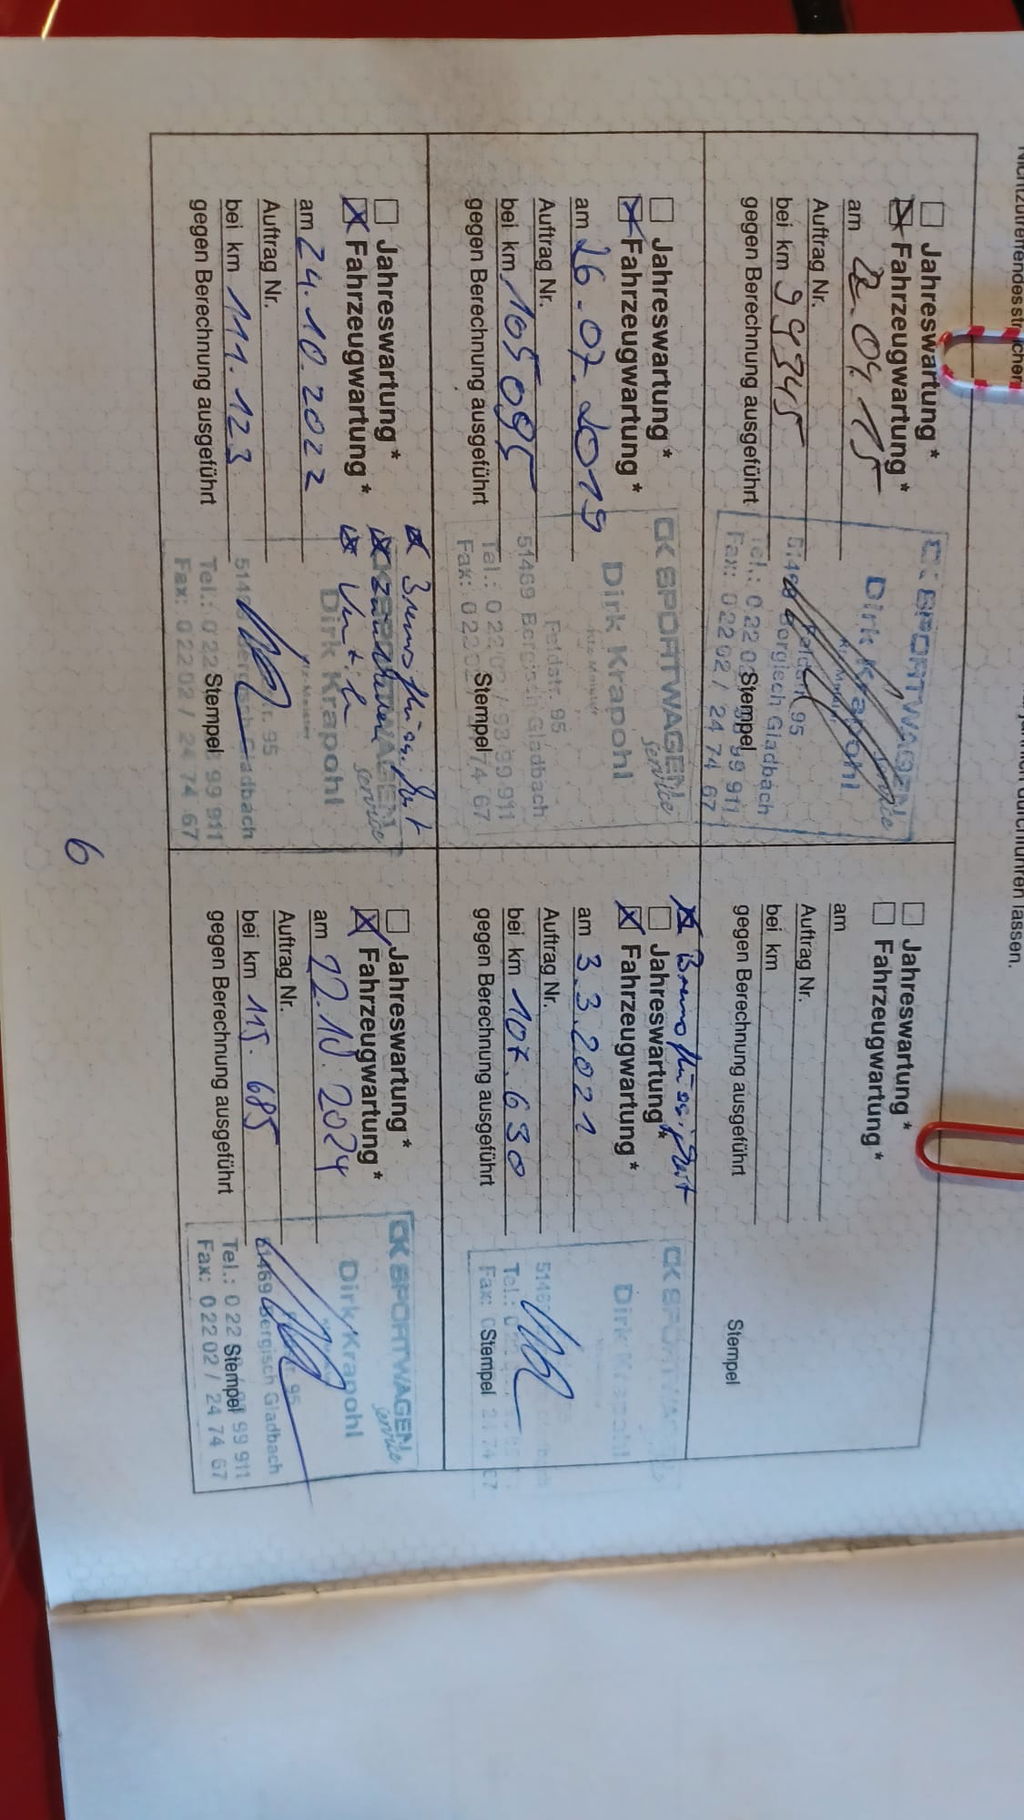 durchführen lassen.
Jahreswartung *
Fahrzeugwartung *
am 22.04.15
Auftrag Nr.
bei km 99345
gegen Berechnung ausgeführt
CK SPORTWAGEN
Service
Dirk Krapohl
Kfz-Meister
Feldstr. 95
51469 Bergisch Gladbach
Fax: 0 22 02 / 24 74 67
Stempel
Jahreswartung *
Fahrzeugwartung *
am
Auftrag Nr.
bei km
gegen Berechnung ausgeführt
Stempel
Jahreswartung *
Fahrzeugwartung *
am 26.07.2019
Auftrag Nr.
bei km 105095
gegen Berechnung ausgeführt
CK SPORTWAGEN
Service
Dirk Krapohl
Kfz-Meister
Feldstr. 95
51469 Bergisch Gladbach
Tel.: 0 22 02 / 93 99 911
Fax: 0 22 02 74 67
Stempel
Bremsflüssigkeit
Jahreswartung *
Fahrzeugwartung *
am 3.3.2021
Auftrag Nr.
bei km 107.630
gegen Berechnung ausgeführt
CK SPORTWAGEN
Dirk Krapohl
Tel.:
Fax:
Stempel
Jahreswartung *
Fahrzeugwartung *
am 24.10.2022
Auftrag Nr.
bei km 111.123
gegen Berechnung ausgeführt
Bremsflüssigkeit
Zündkerzen
Ventile
CK SPORTWAGEN
Service
Dirk Krapohl
Kfz-Meister
Gladbach
Tel.: 0 22 99 911
Fax: 0 22 02 / 24 74 67
Stempel
Jahreswartung *
Fahrzeugwartung *
am 22.10.2024
Auftrag Nr.
bei km 115.685
gegen Berechnung ausgeführt
CK SPORTWAGEN
Service
Dirk Krapohl
51469 Bergisch Gladbach
Tel.: 0 22 99 911
Fax: 0 22 02 / 24 74 67
Stempel
6